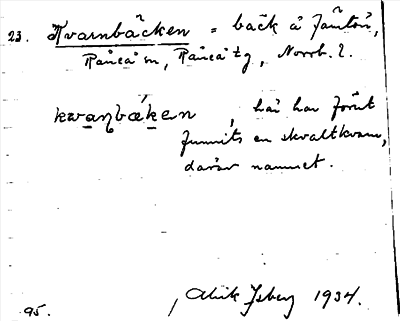 23. Kvarnbäcken = bäck å Jämtön,
Råneå sn, Råneå tg, Norrb. l.
kwaɳbækεn, här har förut
funnits en skvaltkvarn,
därav namnet.
95. Alrik Isberg 1934.